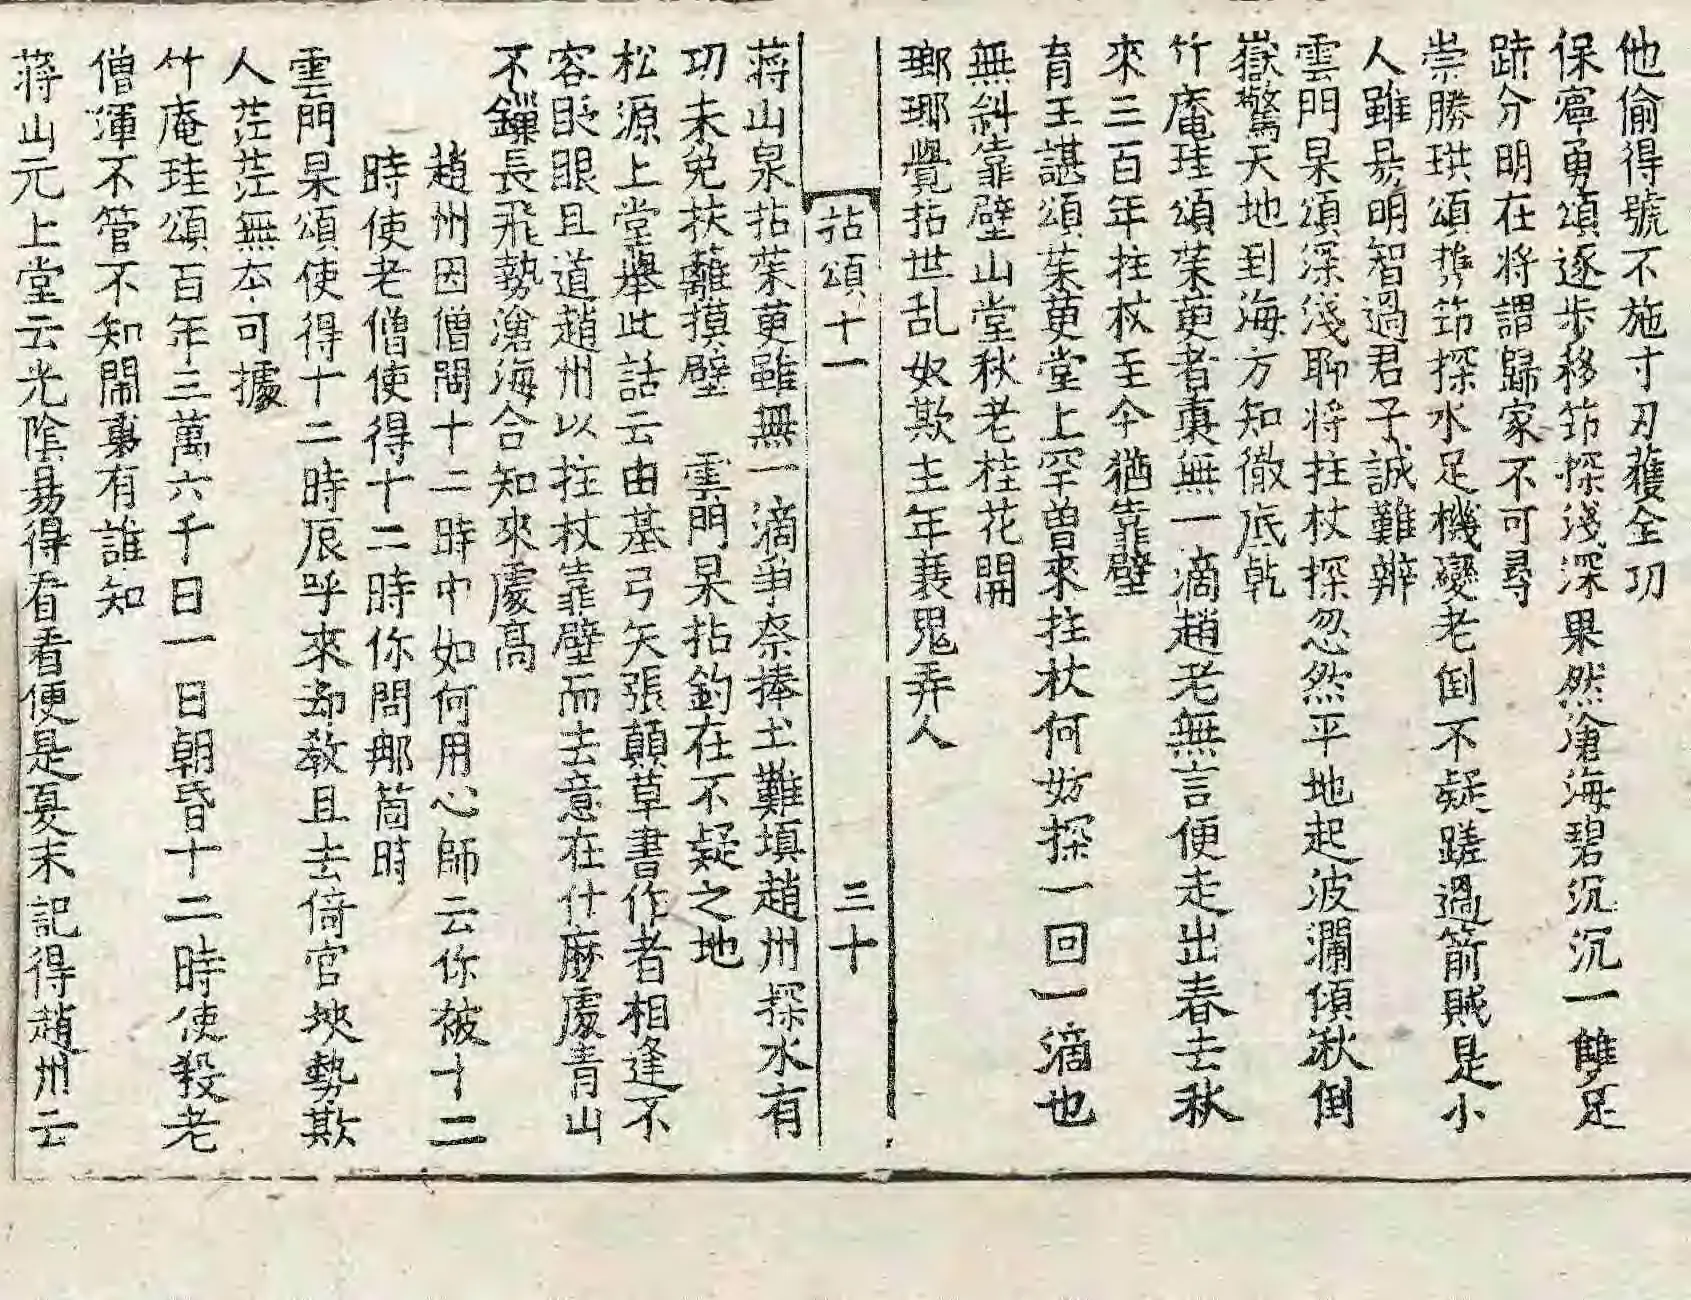 他偷得號不施寸刃獲全功
保寧勇頌逐步移筇探淺深果然滄海碧沉沉一雙足
跡分明在將謂歸家不可尋
崇勝珙頌携筇探水足機變老倒不疑蹉過箭賊是小
人雖易明智過君子誠難辨
雲門杲頌深淺聊將拄杖探忽然平地起波瀾傾湫倒
嶽驚天地到海方知徹底乾
竹庵珪頌茱萸者裏無一滴趙老無言便走出春去秋
來三百年拄杖至今猶靠壁
育王諶頌茱萸堂上罕曾來拄杖何妨探一回一滴也
無斜靠壁山堂秋老桂花開
瑯瑘覺拈世乱奴欺主年衰鬼弄人
拈頌十一 三十
蔣山泉拈茱萸雖無一滴爭奈捧土難填趙州探水有
功未免扶籬摸壁 雲門杲拈釣在不疑之地
松源上堂舉此話云由基弓矢張顛草書作者相逢不
容眨眼且道趙州以拄杖靠壁而去意在什麽處青山
不鏁長飛勢滄海合知來處高
趙州因僧問十二時中如何用心師云你被十二
時使老僧使得十二時你問那箇時
雲門杲頌使得十二時辰呼來却教且去倚官挾勢欺
人茫茫無本可據
竹庵珪頌百年三萬六千日一日朝昏十二時使殺老
僧渾不管不知閙裏有誰知
蔣山元上堂云光陰易得看看便是夏末記得趙州云